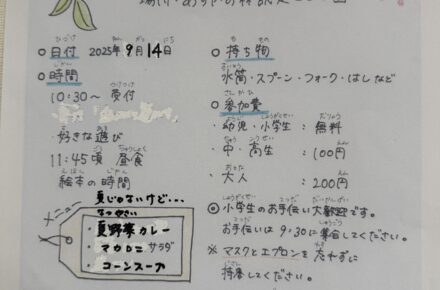 ○日付 2025年9月14日
○時間
10:30〜 受付
・好きな遊び
11:45頃 昼食
絵本の時間
夏じゃないけど・・・
メニュー
・夏野菜カレー
・マカロニサラダ
・コーンスープ
○持ち物
水筒・スプーン・フォーク・はしなど
○参加費
・幼児・小学生：無料
・中・高生：100円
・大人：200円
◎小学生のお手伝い大歓迎です。
お手伝いは9:30に集合してください。
※マスクとエプロンを忘れずに
持参してください。